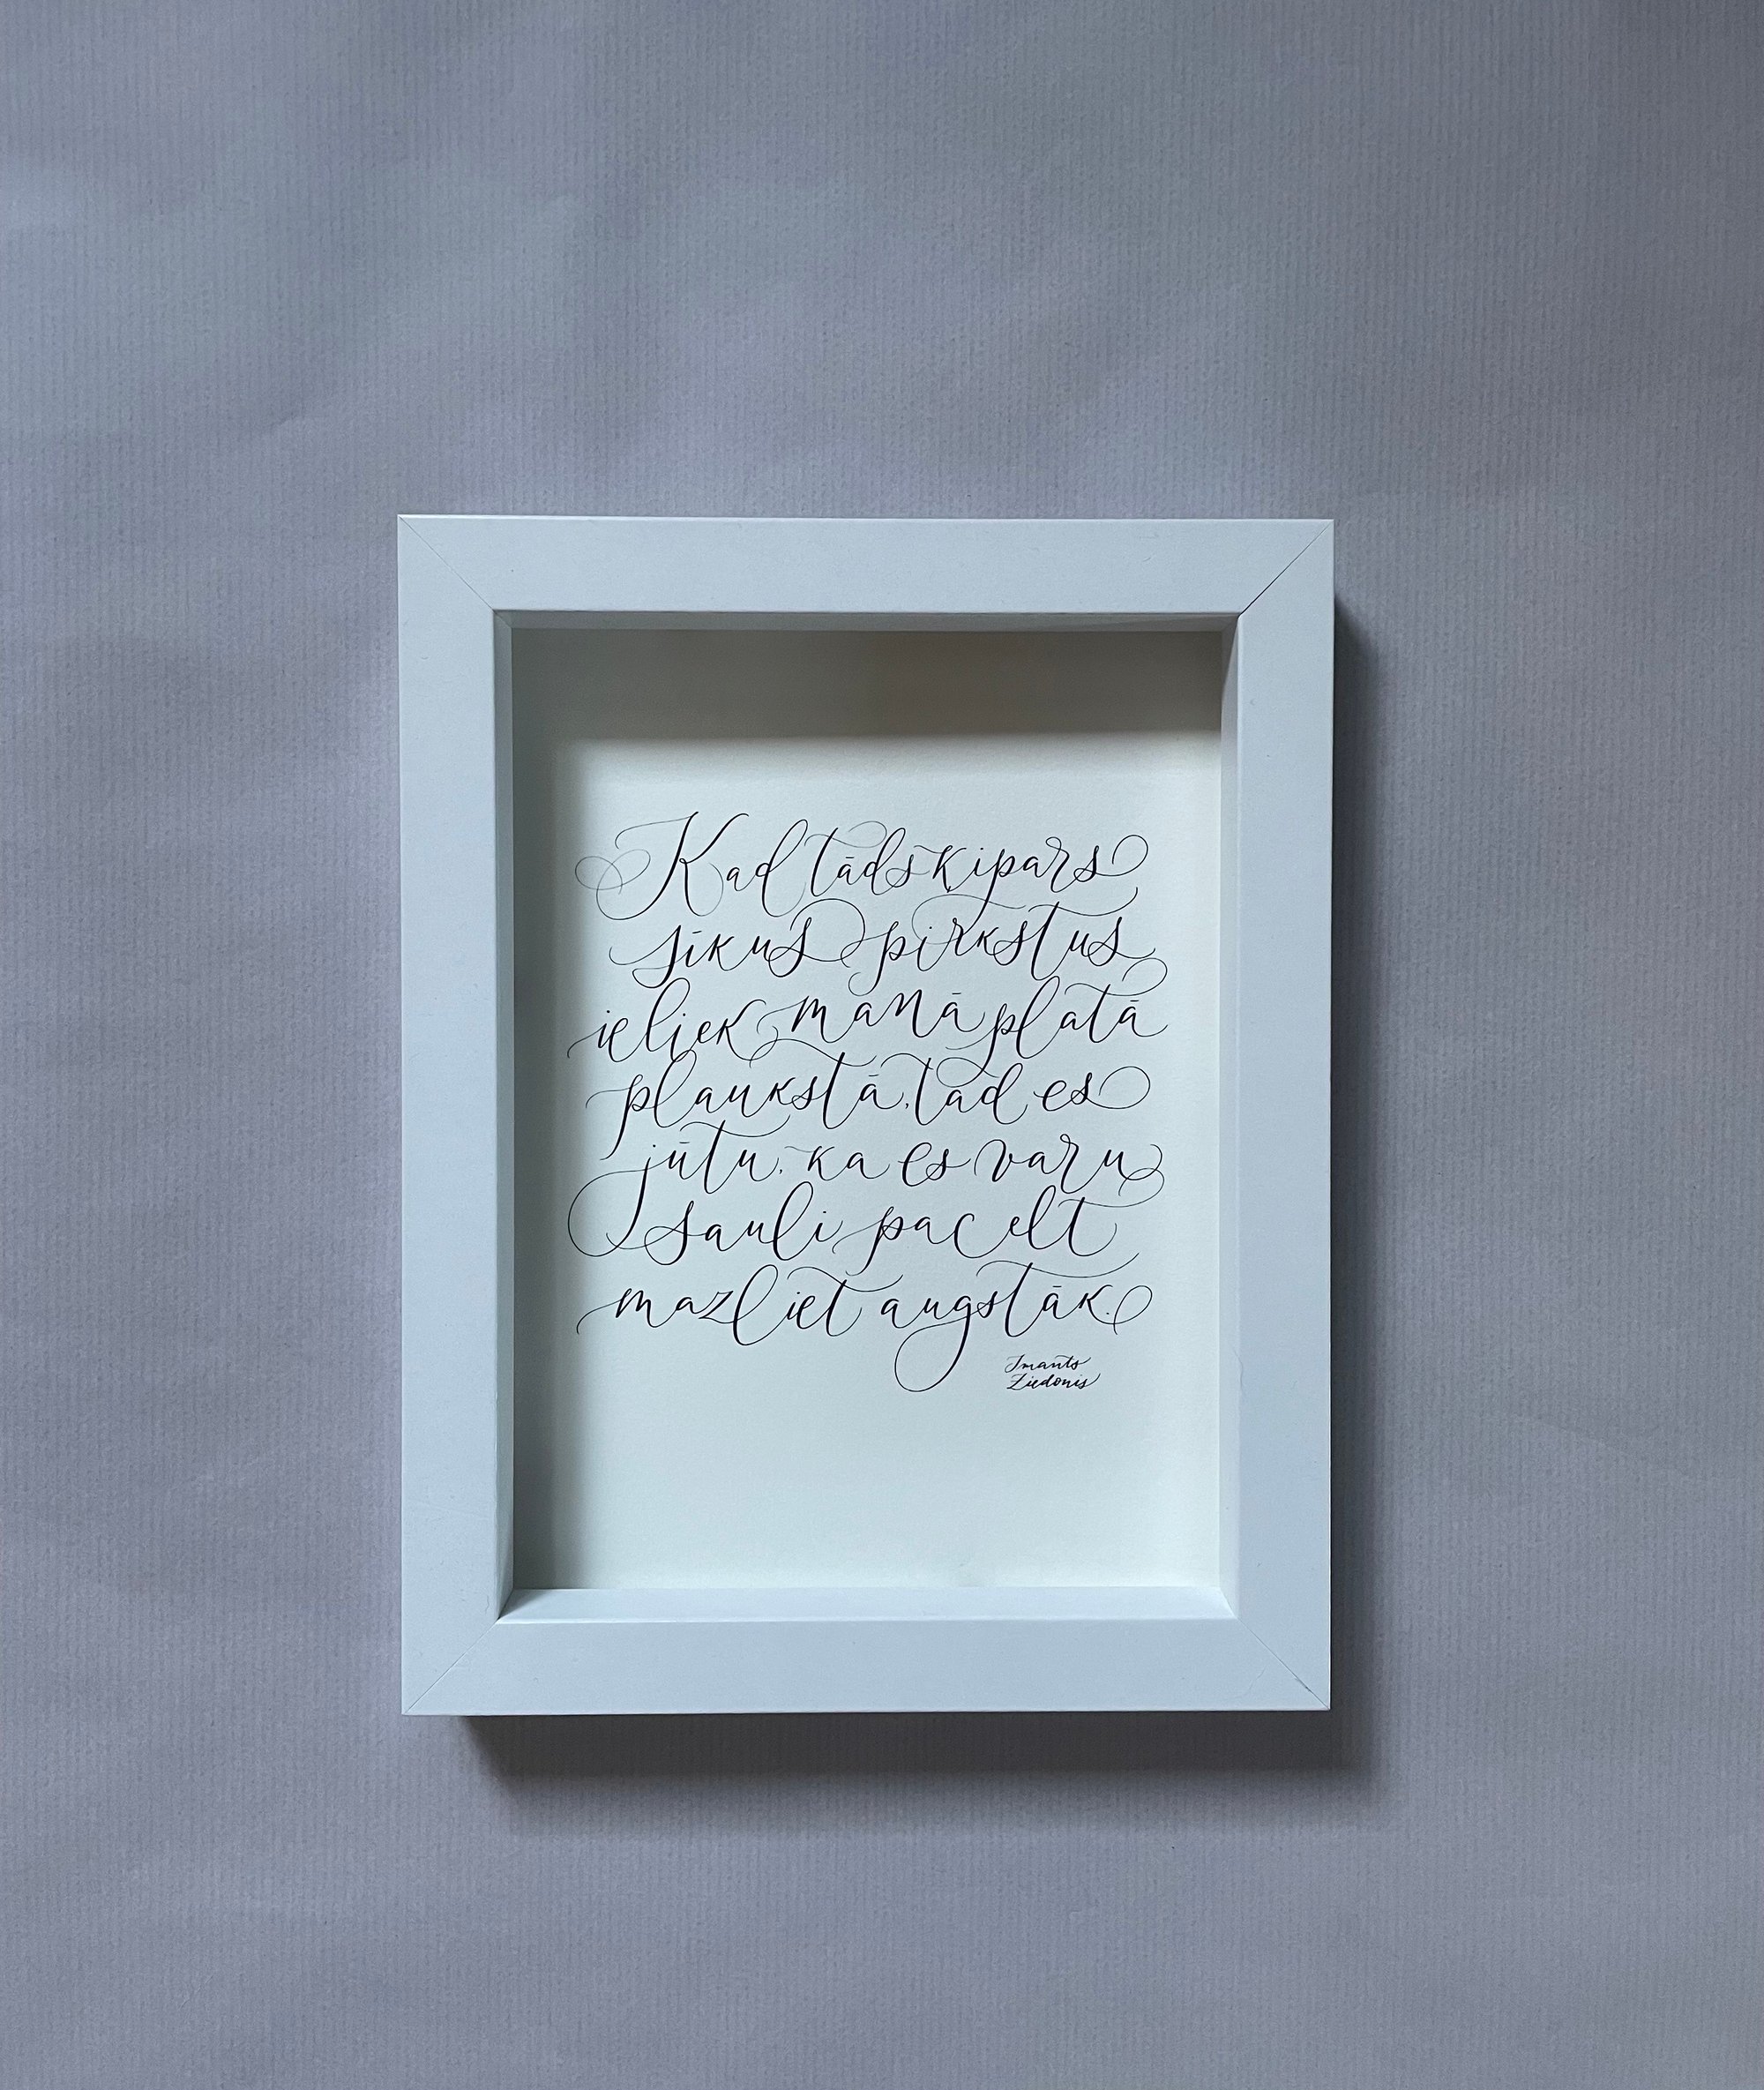 Kad tāds ķipars
sīkus pirkstus
ieliek manā platā
plaukstā, tad es
jūtu, ka es varu
sauli pacelt
mazliet augstāk.
Imants
Ziedonis